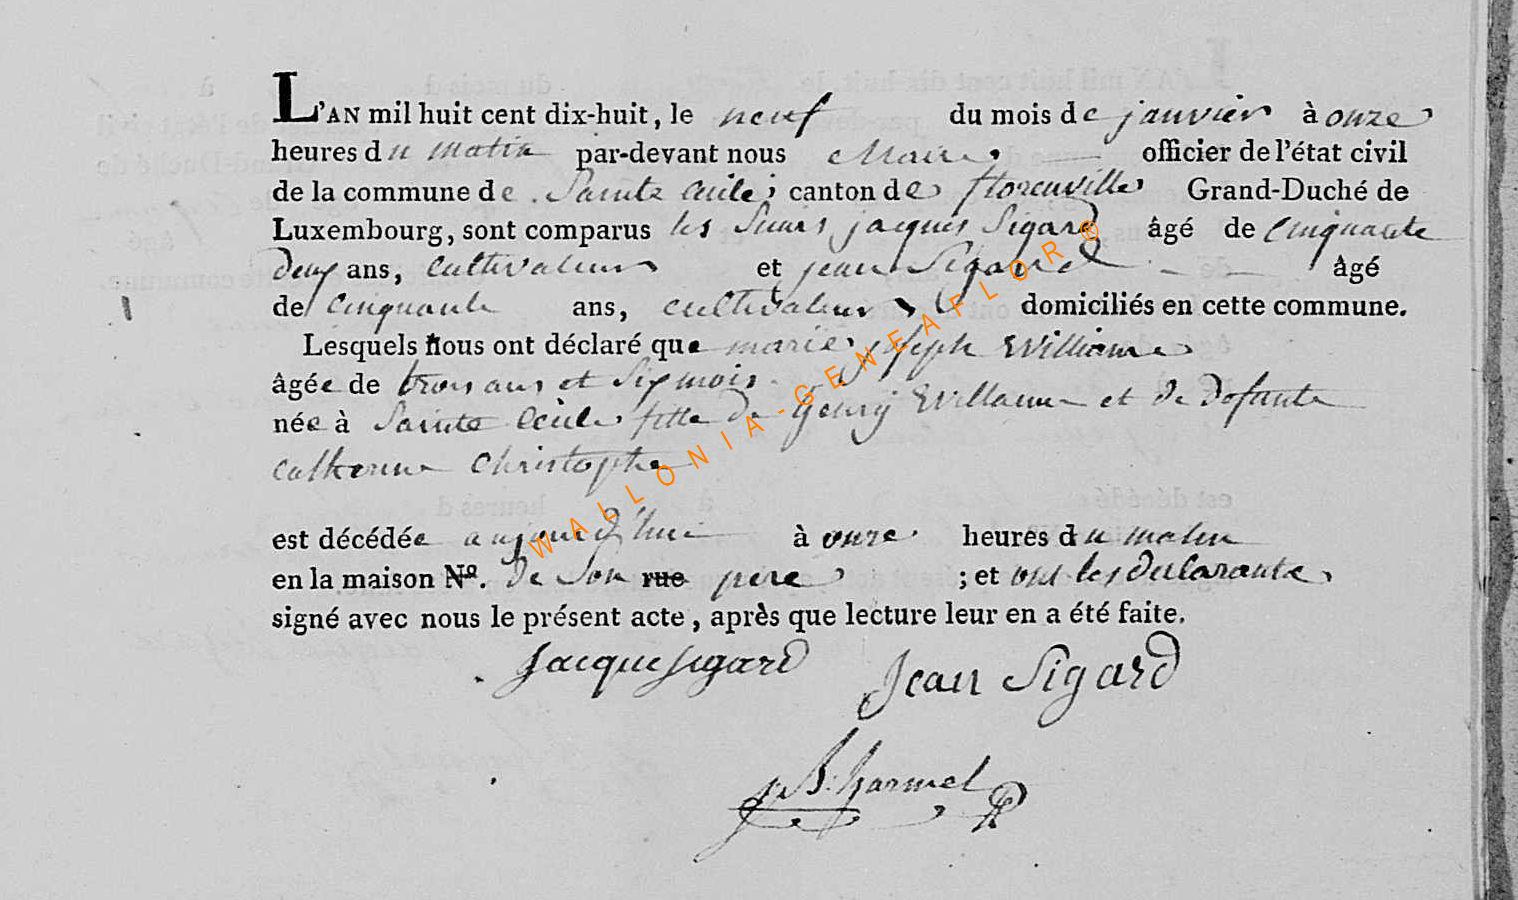 L'AN mil huit cent dix-huit, le neuf du mois de janvier à onze
heures du matin par-devant nous Maire officier de l'état civil
de la commune de Sainte Cecile, canton de florenville Grand-Duché de
Luxembourg, sont comparus les Sieurs jacques Sigard âgé de cinquante
deux ans, cultivateur et jean Sigard âgé
de cinquante ans, cultivateur domiciliés en cette commune.
Lesquels nous ont déclaré que marie joseph Williame
âgée de trois ans et six mois
née à Sainte Cecile fille de henry Willame et de defunte
catherine christophe
est décédée aujourd'hui à onze heures du matin
en la maison Nº. de son rue pere ; et ont les declarants
signé avec nous le présent acte, après que lecture leur en a été faite.
Jacque Sigard Jean Sigard
J B: harmel
WALLONIA-GENEAFLOR®